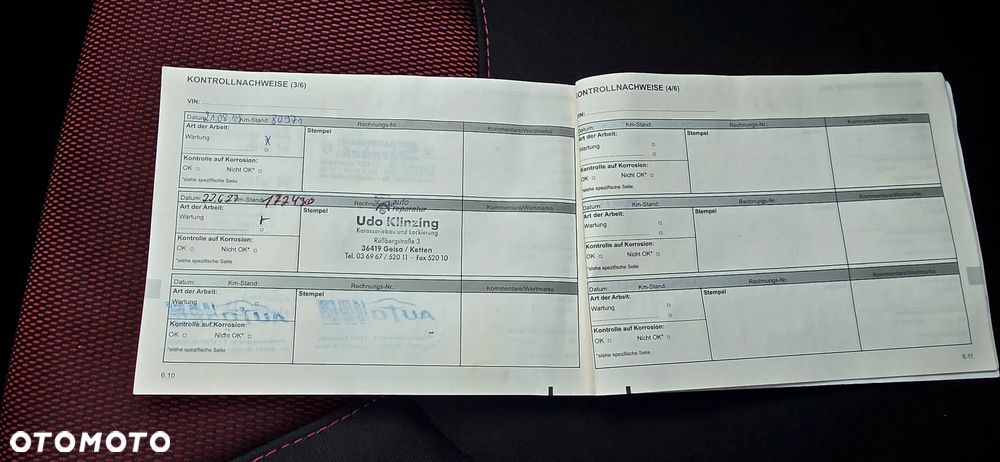 KONTROLLNACHWEISE (3/6)
VIN:
Datum: 21.08.19 Km-Stand: 80971 Rechnungs-Nr.: Kommentare/Wertmarke
Art der Arbeit: Stempel
Wartung X
Kontrolle auf Korrosion:
OK Nicht OK*
*siehe spezifische Seite
Datum: Km-Stand: 122430 Rechnungs-Nr.: Kommentare/Wertmarke
Art der Arbeit: Stempel
Wartung
Kontrolle auf Korrosion:
OK Nicht OK*
*siehe spezifische Seite
auto
reparatur
Udo Klinzing
Karosseriebau und Lackierung
Rößbergstraße 3
36419 Geisa / Ketten
Tel. 03 69 67 / 520 11 · Fax 520 10
Datum: Km-Stand: Rechnungs-Nr.: Kommentare/Wertmarke
Art der Arbeit: Stempel
Wartung
Kontrolle auf Korrosion:
OK Nicht OK*
*siehe spezifische Seite
6.10
KONTROLLNACHWEISE (4/6)
VIN:
Datum: Km-Stand: Rechnungs-Nr.: Kommentare/Wertmarke
Art der Arbeit: Stempel
Wartung
Kontrolle auf Korrosion:
OK Nicht OK*
*siehe spezifische Seite
Datum: Km-Stand: Rechnungs-Nr.: Kommentare/Wertmarke
Art der Arbeit: Stempel
Wartung
Kontrolle auf Korrosion:
OK Nicht OK*
*siehe spezifische Seite
Datum: Km-Stand: Rechnungs-Nr.: Kommentare/Wertmarke
Art der Arbeit: Stempel
Wartung
Kontrolle auf Korrosion:
OK Nicht OK*
*siehe spezifische Seite
6.11
OTOMOTO